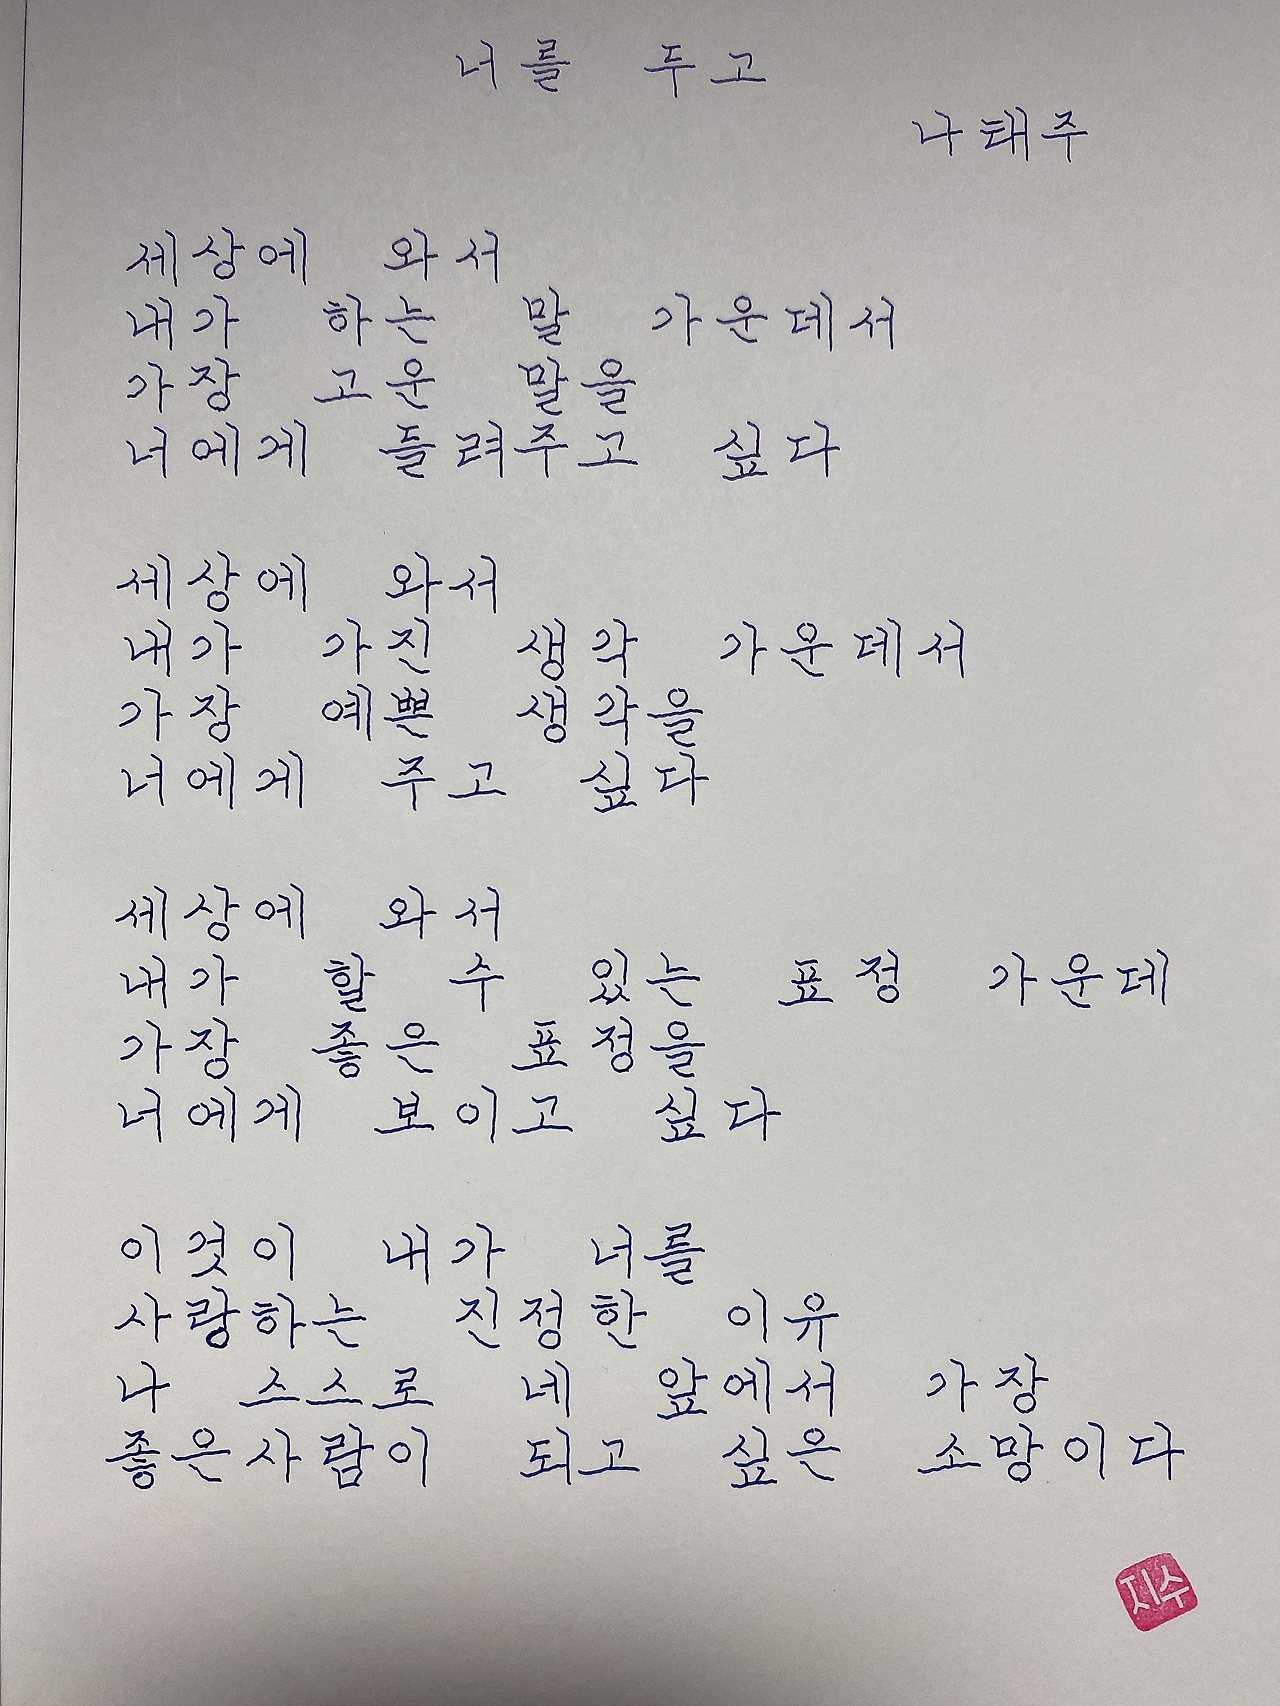 너를 두고
나태주
세상에 와서
내가 하는 말 가운데서
가장 고운 말을
너에게 들려주고 싶다
세상에 와서
내가 가진 생각 가운데서
가장 예쁜 생각을
너에게 주고 싶다
세상에 와서
내가 할 수 있는 표정 가운데
가장 좋은 표정을
너에게 보이고 싶다
이것이 내가 너를
사랑하는 진정한 이유
나 스스로 네 앞에서 가장
좋은사람이 되고 싶은 소망이다
지수